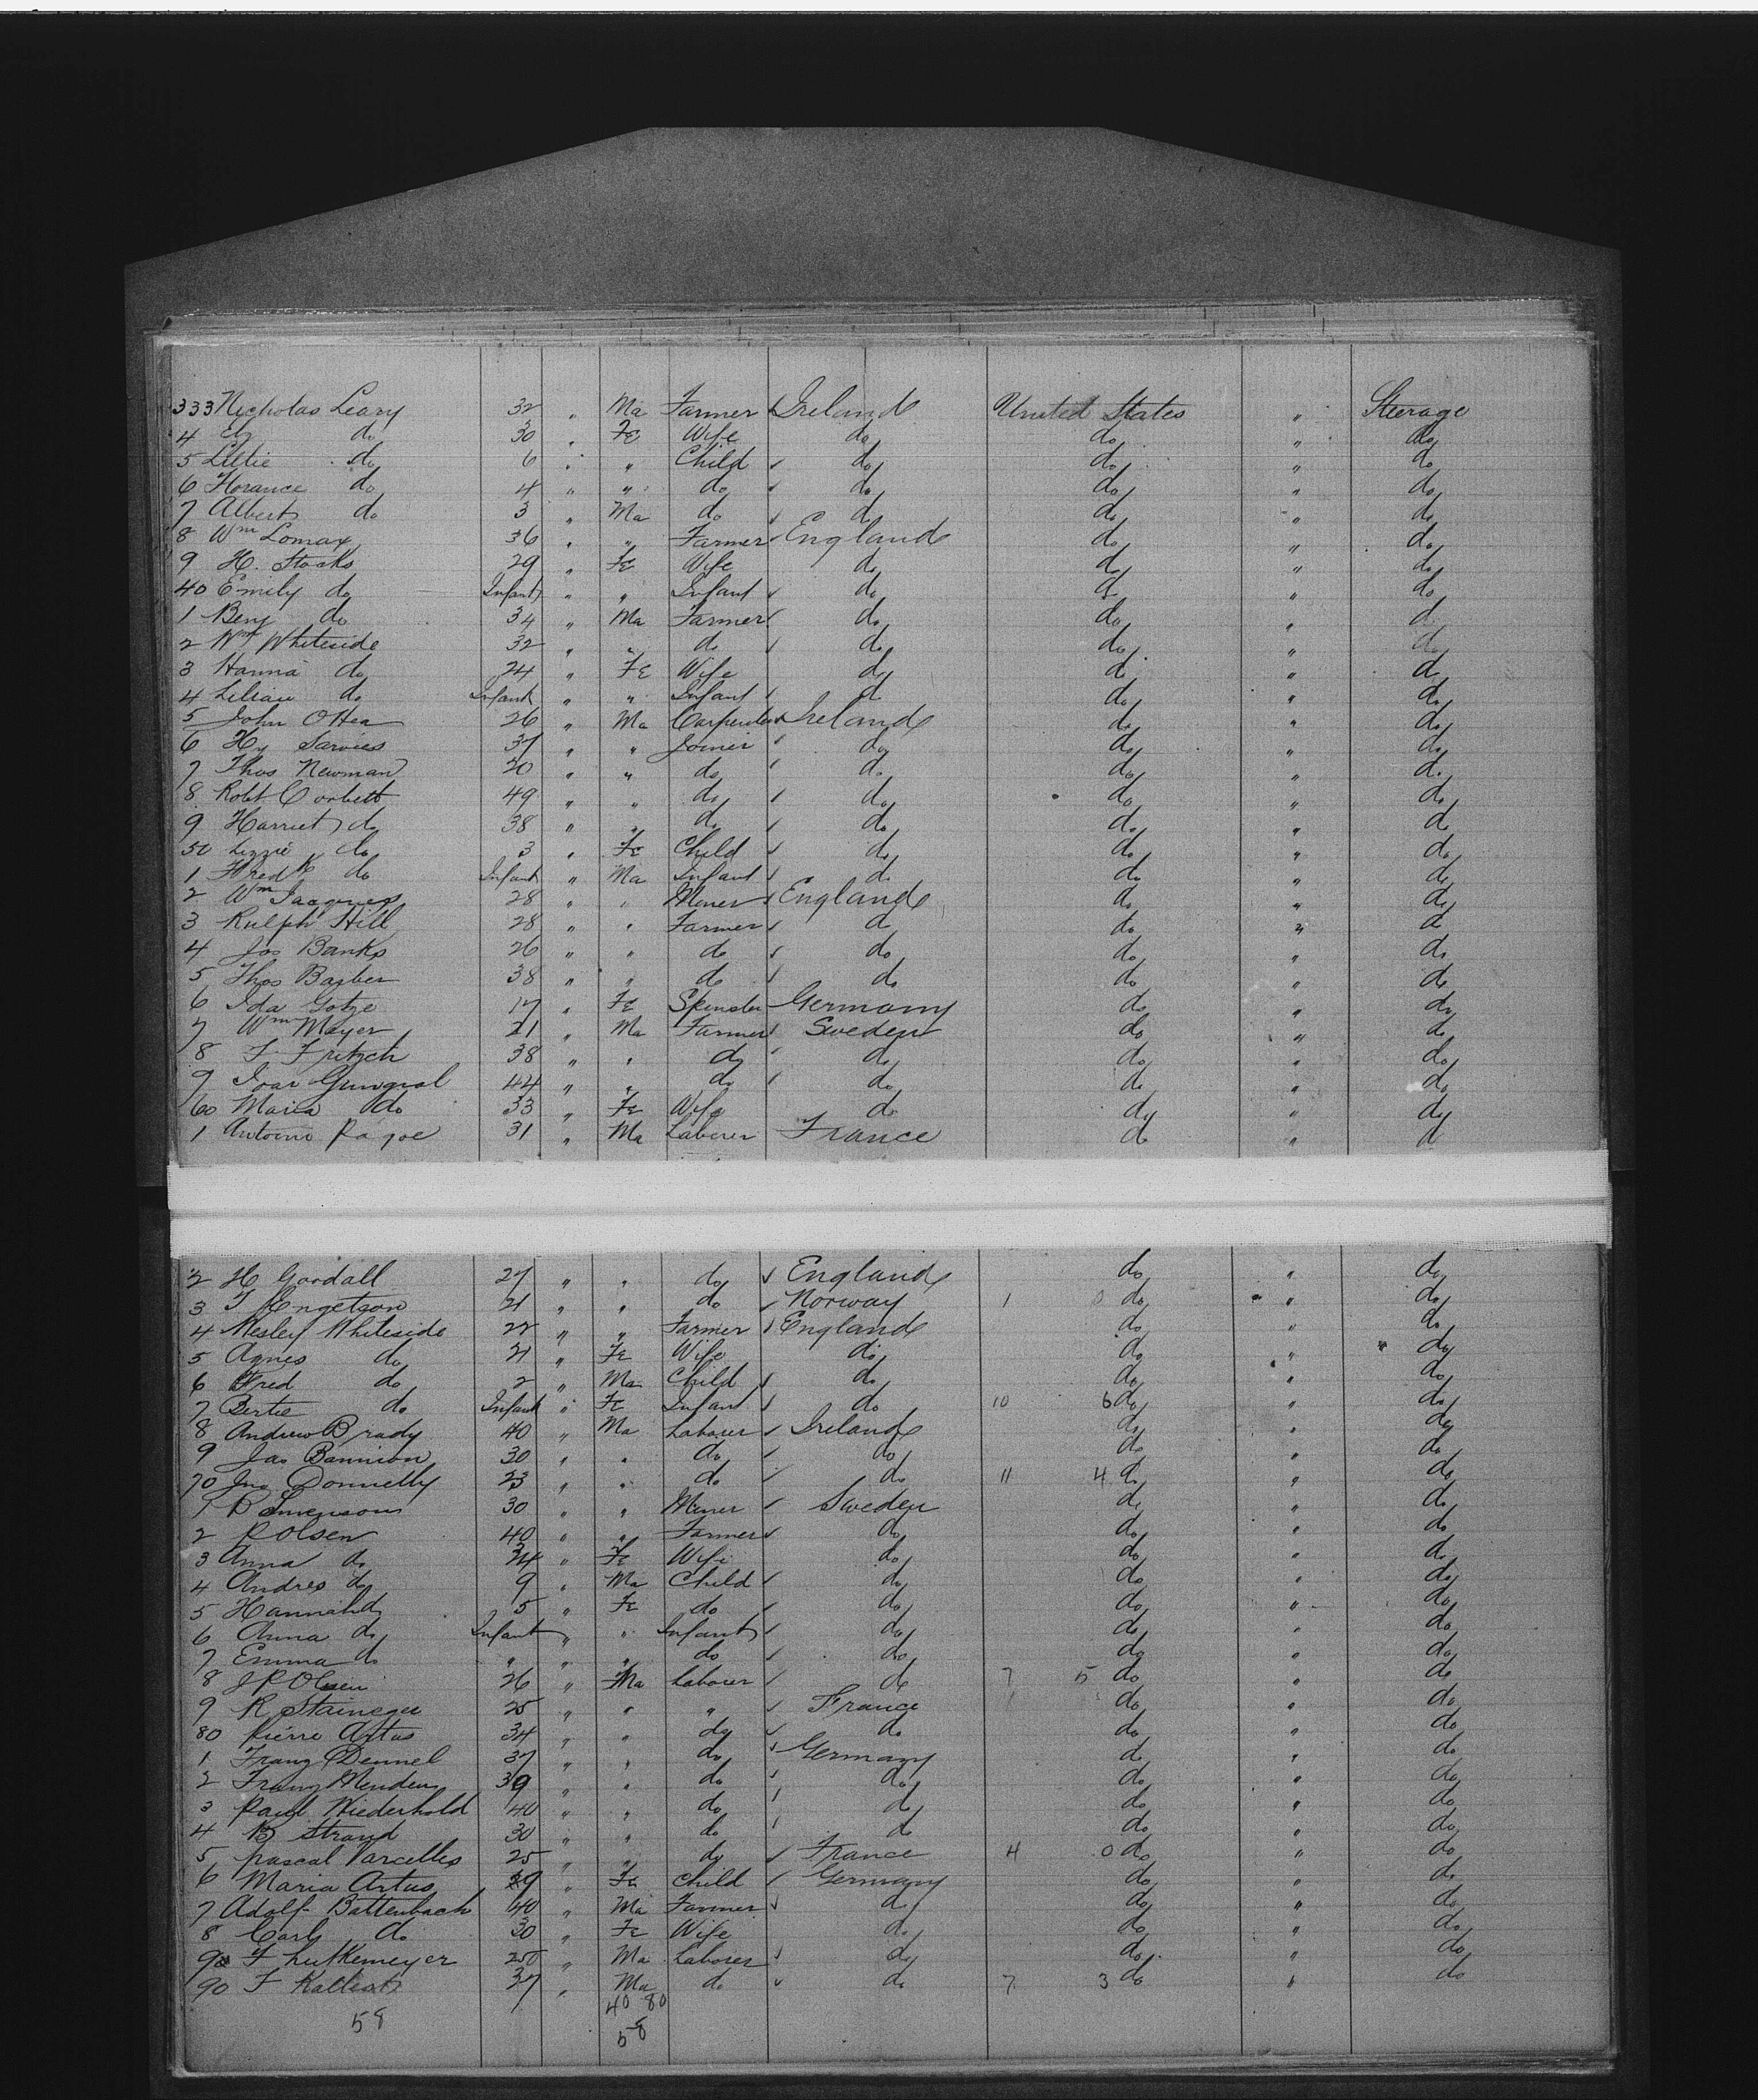 333 Nicholas Leary 32 " Ma Farmer Ireland United States " Steerage
4 do 30 " Fe Wife do do " do
5 Lillie do 6 " " Child do do " do
6 Florance do 4 " " do do do " do
7 Albert do 3 " Ma do do do " do
8 Wm Lomax 36 " " Farmer England do " do
9 H. Stocks 29 " Fe Wife do do " do
40 Emily do Infant " " Infant do do " do
1 Benj do 34 " Ma Farmer do do " do
2 Wm Whiteside 32 " " do do do " do
3 Hanna do 24 " Fe Wife do do " do
4 Lilian do Infant " " Infant do do " do
5 John OHea 26 " Ma Carpenter Ireland do " do
6 Hy 37 " " Joiner do do " do
7 Thos Newman 20 " " do do do " do
8 Robt Corbett 49 " " do do do " do
9 Harriet do 38 " " do do do " do
50 Lizzie do 3 " Fe Child do do " do
1 Fredk do Infant " Ma Infant do do " do
2 Wm 28 " " Miner England do " do
3 Ralph Hill 28 " " Farmer do do " do
4 Jos Banks 26 " " do do do " do
5 Thos Barber 38 " " do do do " do
6 Ida Gotze 17 " Fe Spinster Germany do " do
7 Wm Mayer 21 " Ma Farmer Sweden do " do
8 F Fritzch 38 " " do do do " do
9 44 " " do do do " do
60 Maria do 33 " Fe Wife do do " do
1 Antoine 31 " Ma Laborer France do " do
2 H Goodall 27 " " do England do " do
3 21 " " do Norway 1 0 do " do
4 Wesley Whiteside 22 " " Farmer England do " do
5 Agnes do 21 " Fe Wife do do " do
6 Fred do 2 " Ma Child do do " do
7 Bertie do Infant " Fe Infant do 10 6 do " do
8 Andrew Brady 40 " Ma Laborer Ireland do " do
9 Jas Bannion 30 " " do do do " do
70 Jno Donnelly 23 " " do do 11 4 do " do
1 B Swenson 30 " " Miner Sweden do " do
2 P Olsen 40 " " Farmer do do " do
3 Anna do 34 " Fe Wife do do " do
4 Andres do 9 " Ma Child do do " do
5 Hannah do 5 " Fe do do do " do
6 Anna do Infant " " Infant do do " do
7 Emma do " " " do do do " do
8 J P Olsen 26 " Ma Laborer do 7 5 do " do
9 R 25 " " " France do " do
80 Pierre Artus 34 " " do do do " do
1 Franz Demmel 37 " " do Germany do " do
2 Franz 39 " " do do do " do
3 Paul Niederhold 40 " " do do do " do
4 B Strand 30 " " do do do " do
5 Pascal Varcelles 25 " " do France 4 0 do " do
6 Maria Artus 29 " Fe Child Germany do " do
7 Adolf Battenbach 40 " Ma Farmer do do " do
8 Carl do 30 " Fe Wife do do " do
9 F Lutkemeyer 25 " Ma Laborer do do " do
90 F 37 " Ma do do 7 3 do " do
40 80
58 58